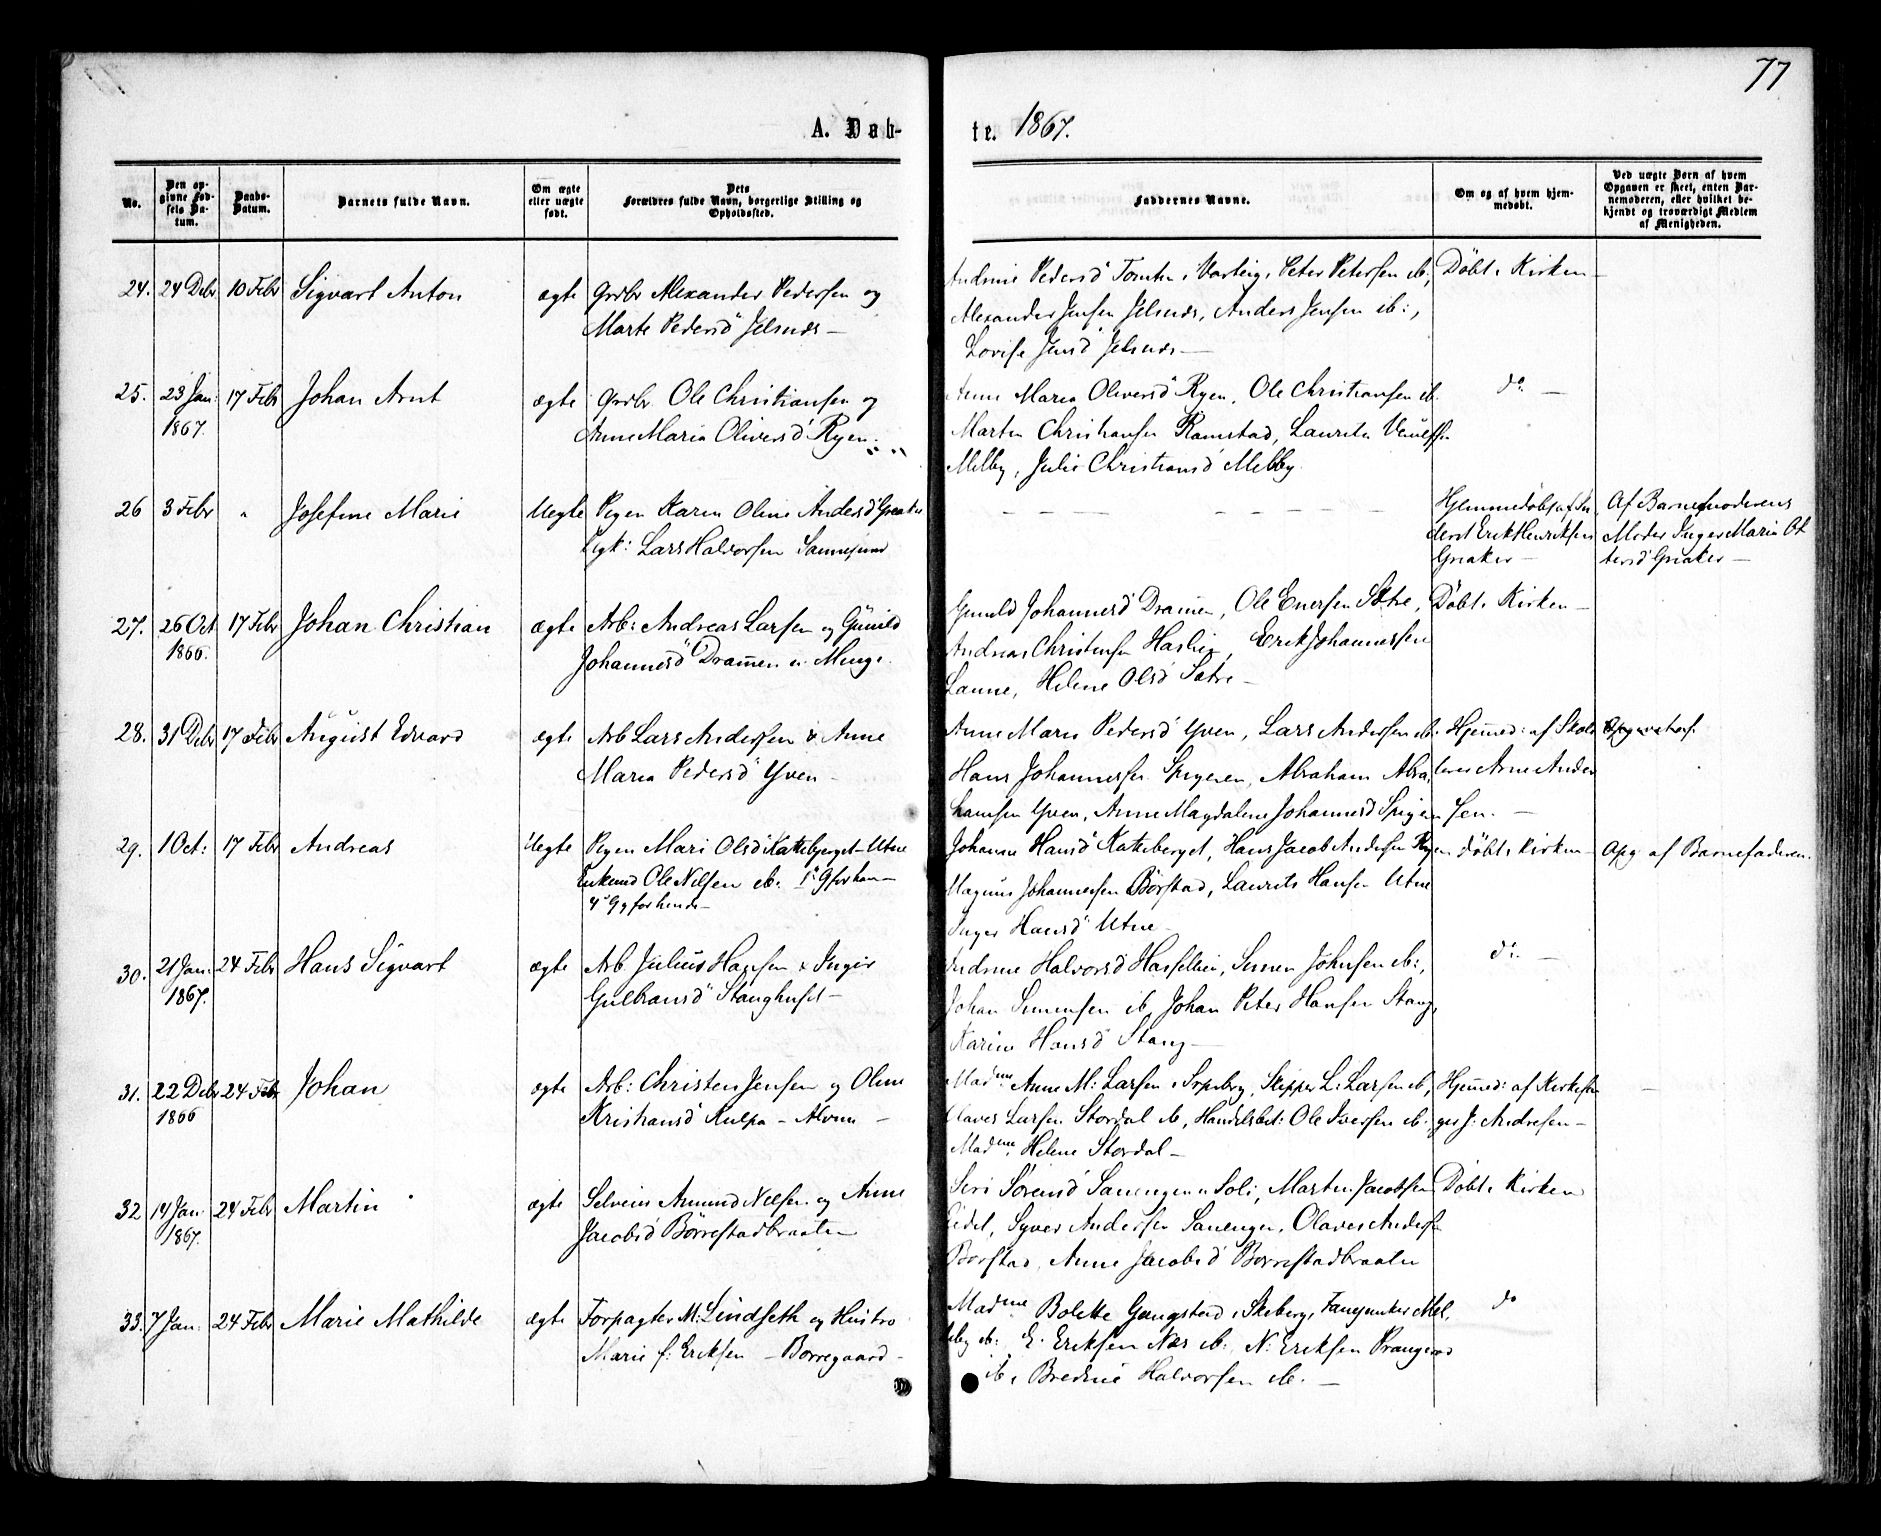 77
A. Døb-
te. 1867.
No.
Den op-
givne Fød-
sels Da-
tum.
Daabs-
Datum.
Barnets fulde Navn.
Om ægte
eller uægte
født.
Dets
Forældres fulde Navn, borgerlige Stilling og
Opholdssted.
Faddernes Navne.
Om og af hvem hjem-
medøbt.
Ved uægte Børn af hvem
Opgaven er skeet, enten Bar-
nemoderen, eller hvilket be-
kjendt og troværdigt Medlem
af Menigheden.
24. 24 Debr 10 Febr Sigvart Anton ægte Grdbr Alexander Pedersen og
Marte Pedersd Jelsnes –
Pedersd Tomten i Varteig, Peter Petersen ib,
Alexander Jensen Jelsnes, Anders Jensen ib:,
Lovise Jensd Jelsnes –
Døbt i Kirken –
25. 23 Jan: 17 Febr Johan Arnt ægte Grdbr Ole Christiansen og
1867.
Anne Maria Oliversd Ryen
Anne Maria Oliversd Ryen, Ole Christiansen ib.
Martin Christiansen Ramstad, Laurits
Melby, Julie Christiansd Melby.
do –
26 3 Febr " Josefine Marie Uegte Pigen Karen Oline Andersd Greaker
Ugk: Lars Halvorsen Sannesund
– – – – –
Hjemmedøbt af
Erik Henriksen
Greaker –
Af Barnemoderens
Moder Inger Maria
Greaker –
27. 26 Oct 17 Febr Johan Christian ægte Arb: Andreas Larsen og Gunild
1866.
Johannesd Dramen u. Minge.
Gunild Johannesd Dramen, Ole Enersen Sætre,
Andreas Christensen Haslien, Erik Johannessen
Lanne, Helene Olsd Sætre –
Døbt i Kirken –
28. 31 Debr 17 Febr August Edvard ægte Arb Lars Andersen & Anne
Maria Pedersd Yven –
Anne Maria Pedersd Yven, Lars Andersen ib.
Hans Johannesen Spygeren, Abraham Abra-
hamsen Yven, Anne Magdalene Johannesd
Hjemmed: af Skole
lærer Arne Ander
sen. –
29. 1 Oct: 17 Febr Andreas Uegte Pigen Mari Olsd Katteberget – Utne
Enkemd Ole Nilsen ib: 1ste G for ham –
4de Gg for hende –
Johanne Hansd Katteberget, Hans Jacob Andersen Ryen
Magnus Johannessen Børstad, Laurits Hansen Utne
Inger Hansd Utne –
Døbt i Kirken –
Opg af Barnefaderen.
30. 21 Jan: 24 Febr Hans Sigvart ægte Arb Julius Hansen & Inger
1867.
Gulbransd Stanghuset –
Halvorsd Hassellien, Simen Johnsen ib:,
Johan Simensen ib, Johan Peter Hansen Stang,
Karine Hansd Stang –
do –
31. 22 Debr 24 Febr Johan ægte Arb: Christen Jensen og Oline
1866
Kristiansd Kulpa – Alvim –
Madme Anne M: Larsen i Srpsborg, Skipper L: Larsen ib,
Olaves Larsen Stordal ib, Handelsbet: Ole Iversen ib.
Madme Helene Stordal –
Hjemmed: af Kirkesan
ger J: Andresen –
–
32 14 Jan 24 Febr Martin ægte Selveier Amund Nilsen og Anne
1867.
Jacobsd Børrestadbraaten
Siri Sørensd Sanengen u Soli, Martin Jacobsen
Eidet, Syver Andersen Sanengen, Olaves Andersen
Borstad, Anne Jacobsd Borrestadbraaten
Døbt i Kirken
33. 7 Jan: 24 Febr Marie Mathilde ægte Forpagter M: Lindseth og Hustro
Marie f: Eriksen – Borregaard –
Madme Bolette Gangstad i Skeberg,
ib: E. Eriksen Næs ib:, N: Eriksen
ib, Bredine Halvorsen ib. –
do